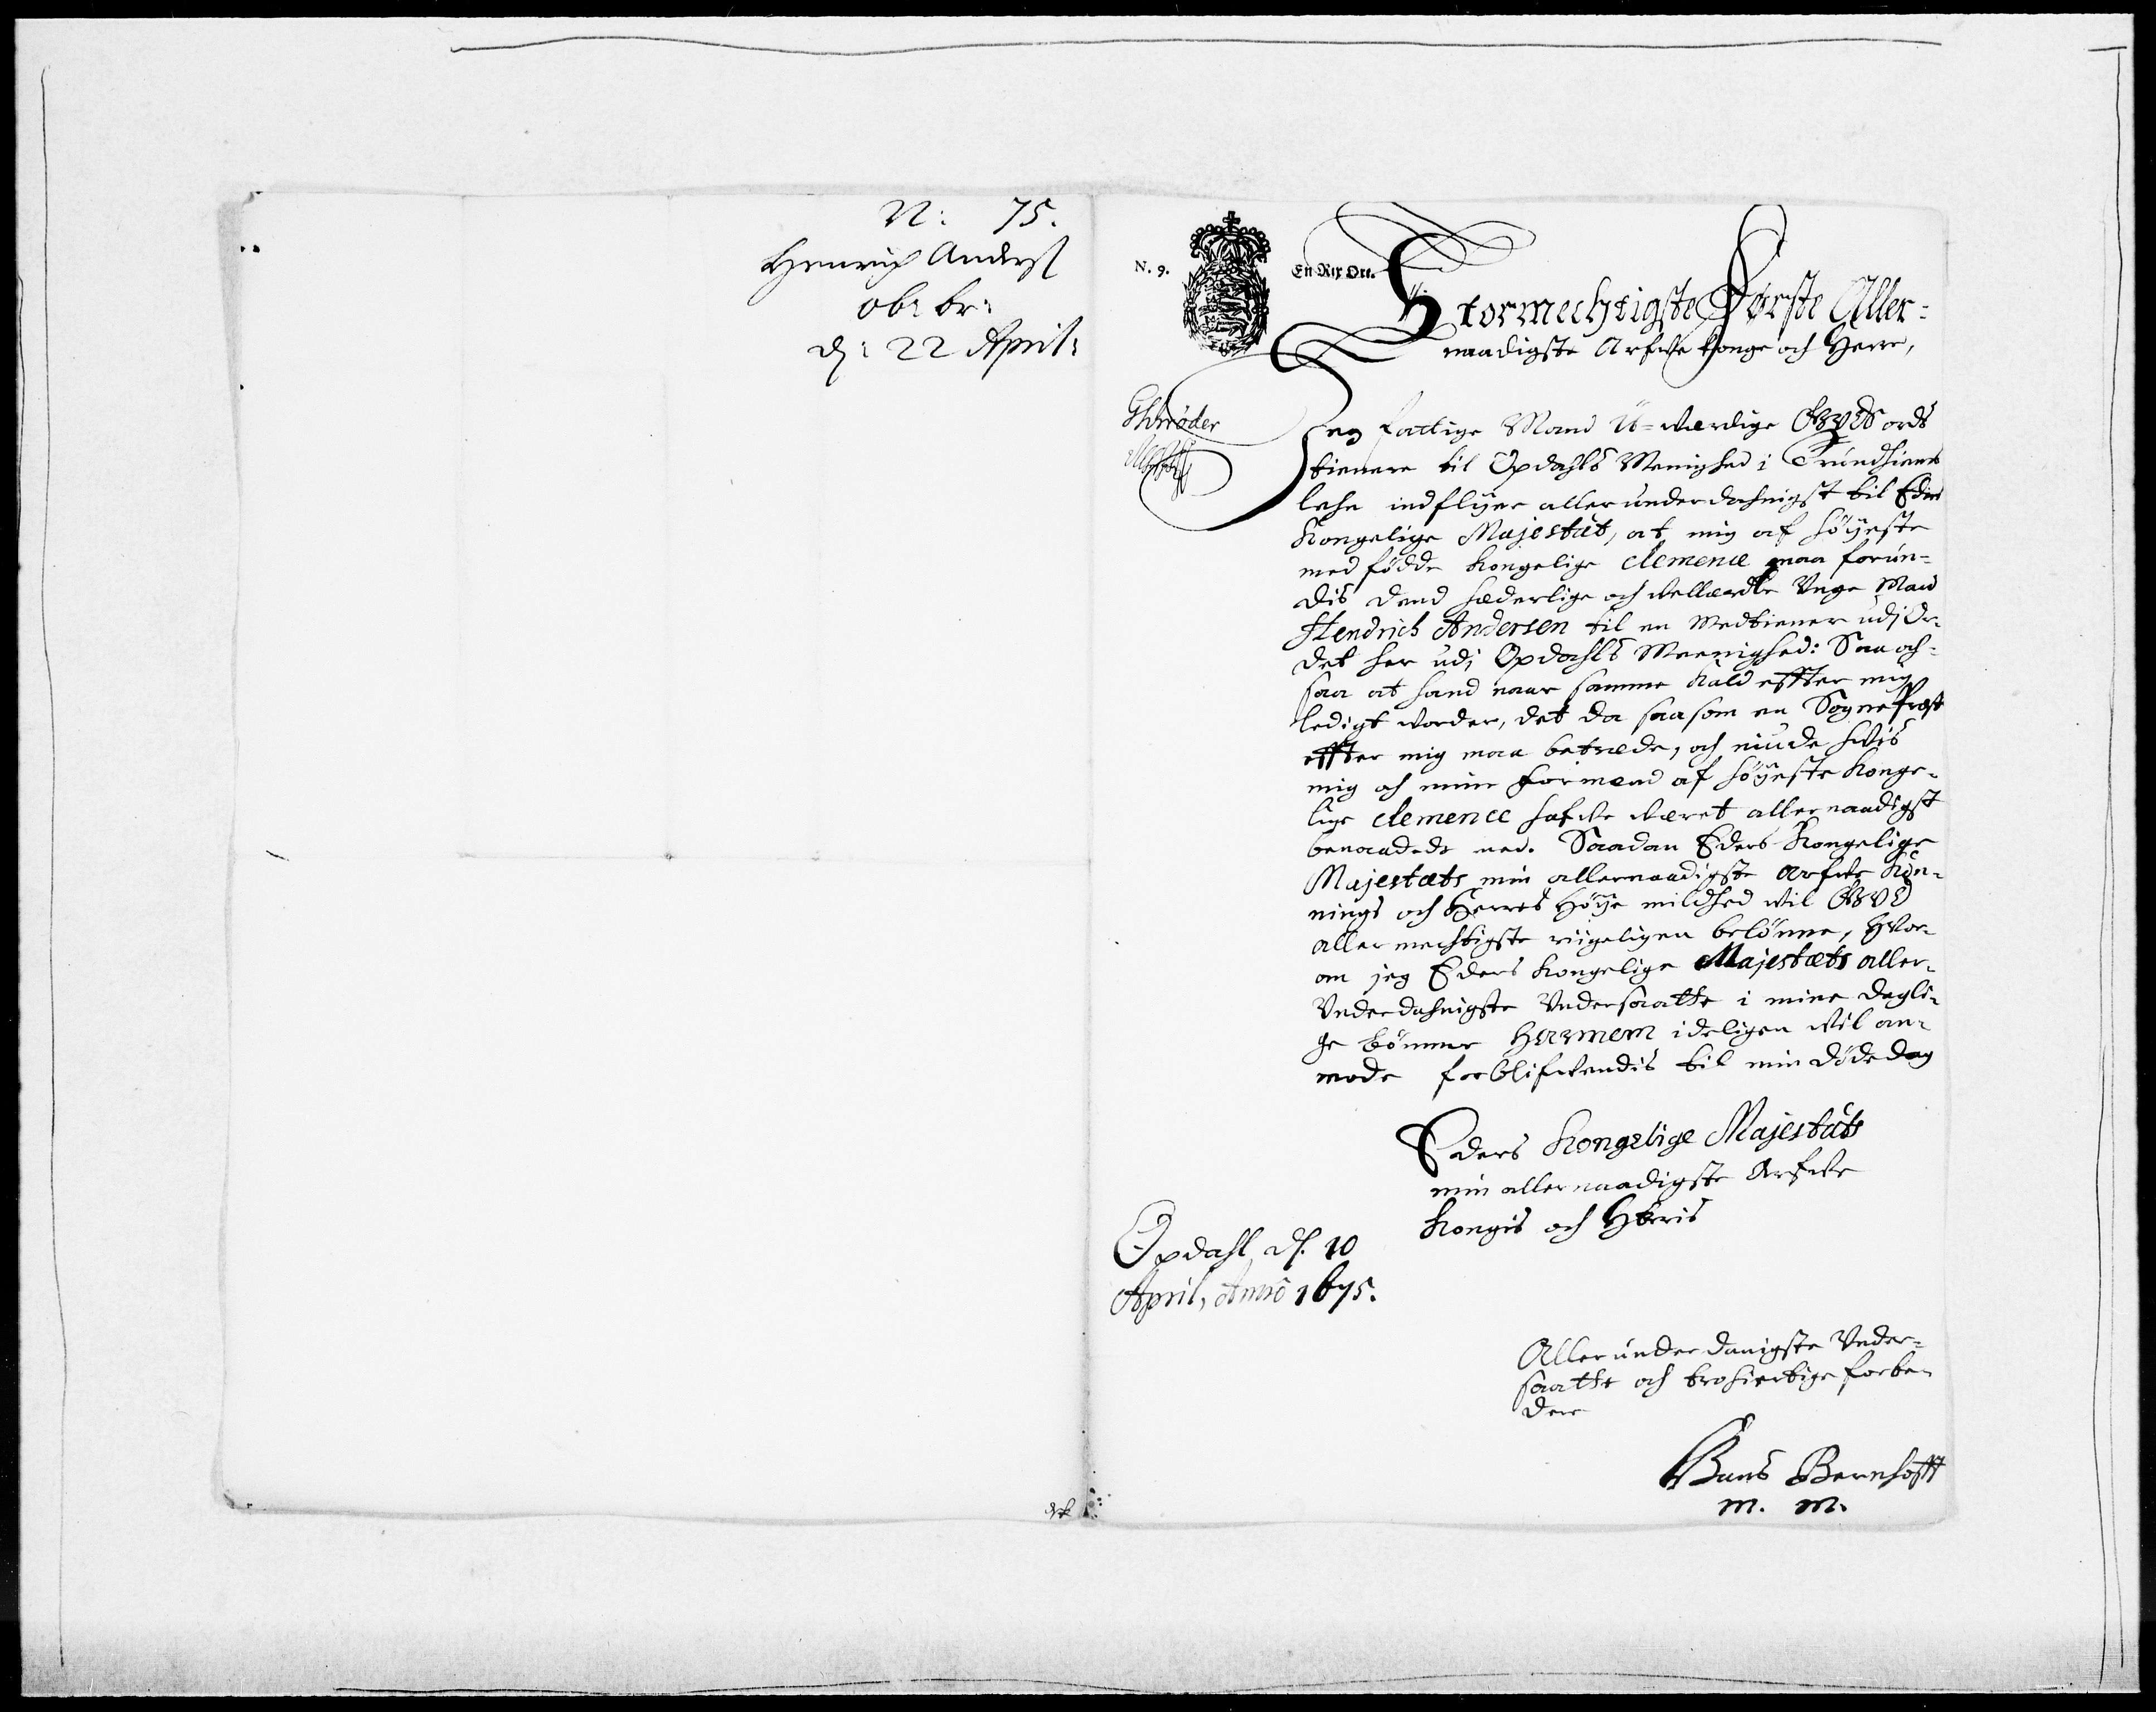 N: 75.
Henrich Anders
ob: br:
d: 22 April:
N. 9.
En Rix Ort.
Stormechtigste Første Aller-
naadigste Arfve konge och Herre,
Jeg fattige Mand U-værdige GUDS ords
tienere til Opdahls Menighed i Trundhiems
lehn indflyer allerunderdahnigst til Eders
Kongelige Majestät, at mig af höyeste
medfödde kongelige clemence maa forun-
dis dend hæderlige och vellærde Unge Mand
Hendrich Andersen til en Medtiener udj Or-
det her udj Opdahls Meenighed: Saa och-
saa at hand naar samme kald effter mig
ledigt vorder, det da saasom en SognePræst
effter mig maa betræde, och niude hvis
mig och mine Formænd af höyeste konge-
lige clemence hafve været allernaadigst
benaadede med. Saadan Eders Kongelige
Majestæts min allernaadigste Arfve Kön-
nings och Herres Höye mildhed vil GUD
allermechtigste riigeligen belönne, hvor-
om jeg Eders kongelige Majestæts aller-
Underdahnigste Undersaatte i mine dagli-
ge bönner Hannem ideligen vil an-
mode forblifvendis til min dödedag
Eders Kongelige Majestäts
min allernaadigste Arfve
Kongis och Herris
Opdahl d. 10
April, Anno 1675.
Allerunderdanigste Under-
saatte och trohiertige forbe-
dere
Hans Bernhofft
m. m.